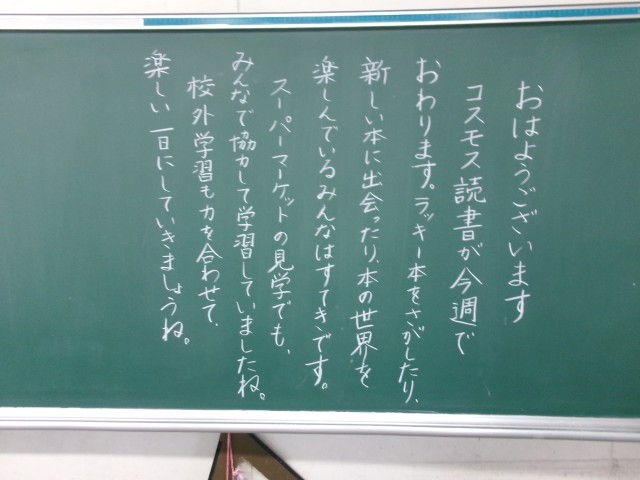 おはようございます
コスモス読書が今週で
おわります。ラッキー本をさがしたり、
新しい本に出会ったり、本の世界を
楽しんでいるみんなはすてきです。
スーパーマーケットの見学でも、
みんなで協力して学習していましたね。
校外学習も力を合わせて、
楽しい一日にしていきましょうね。